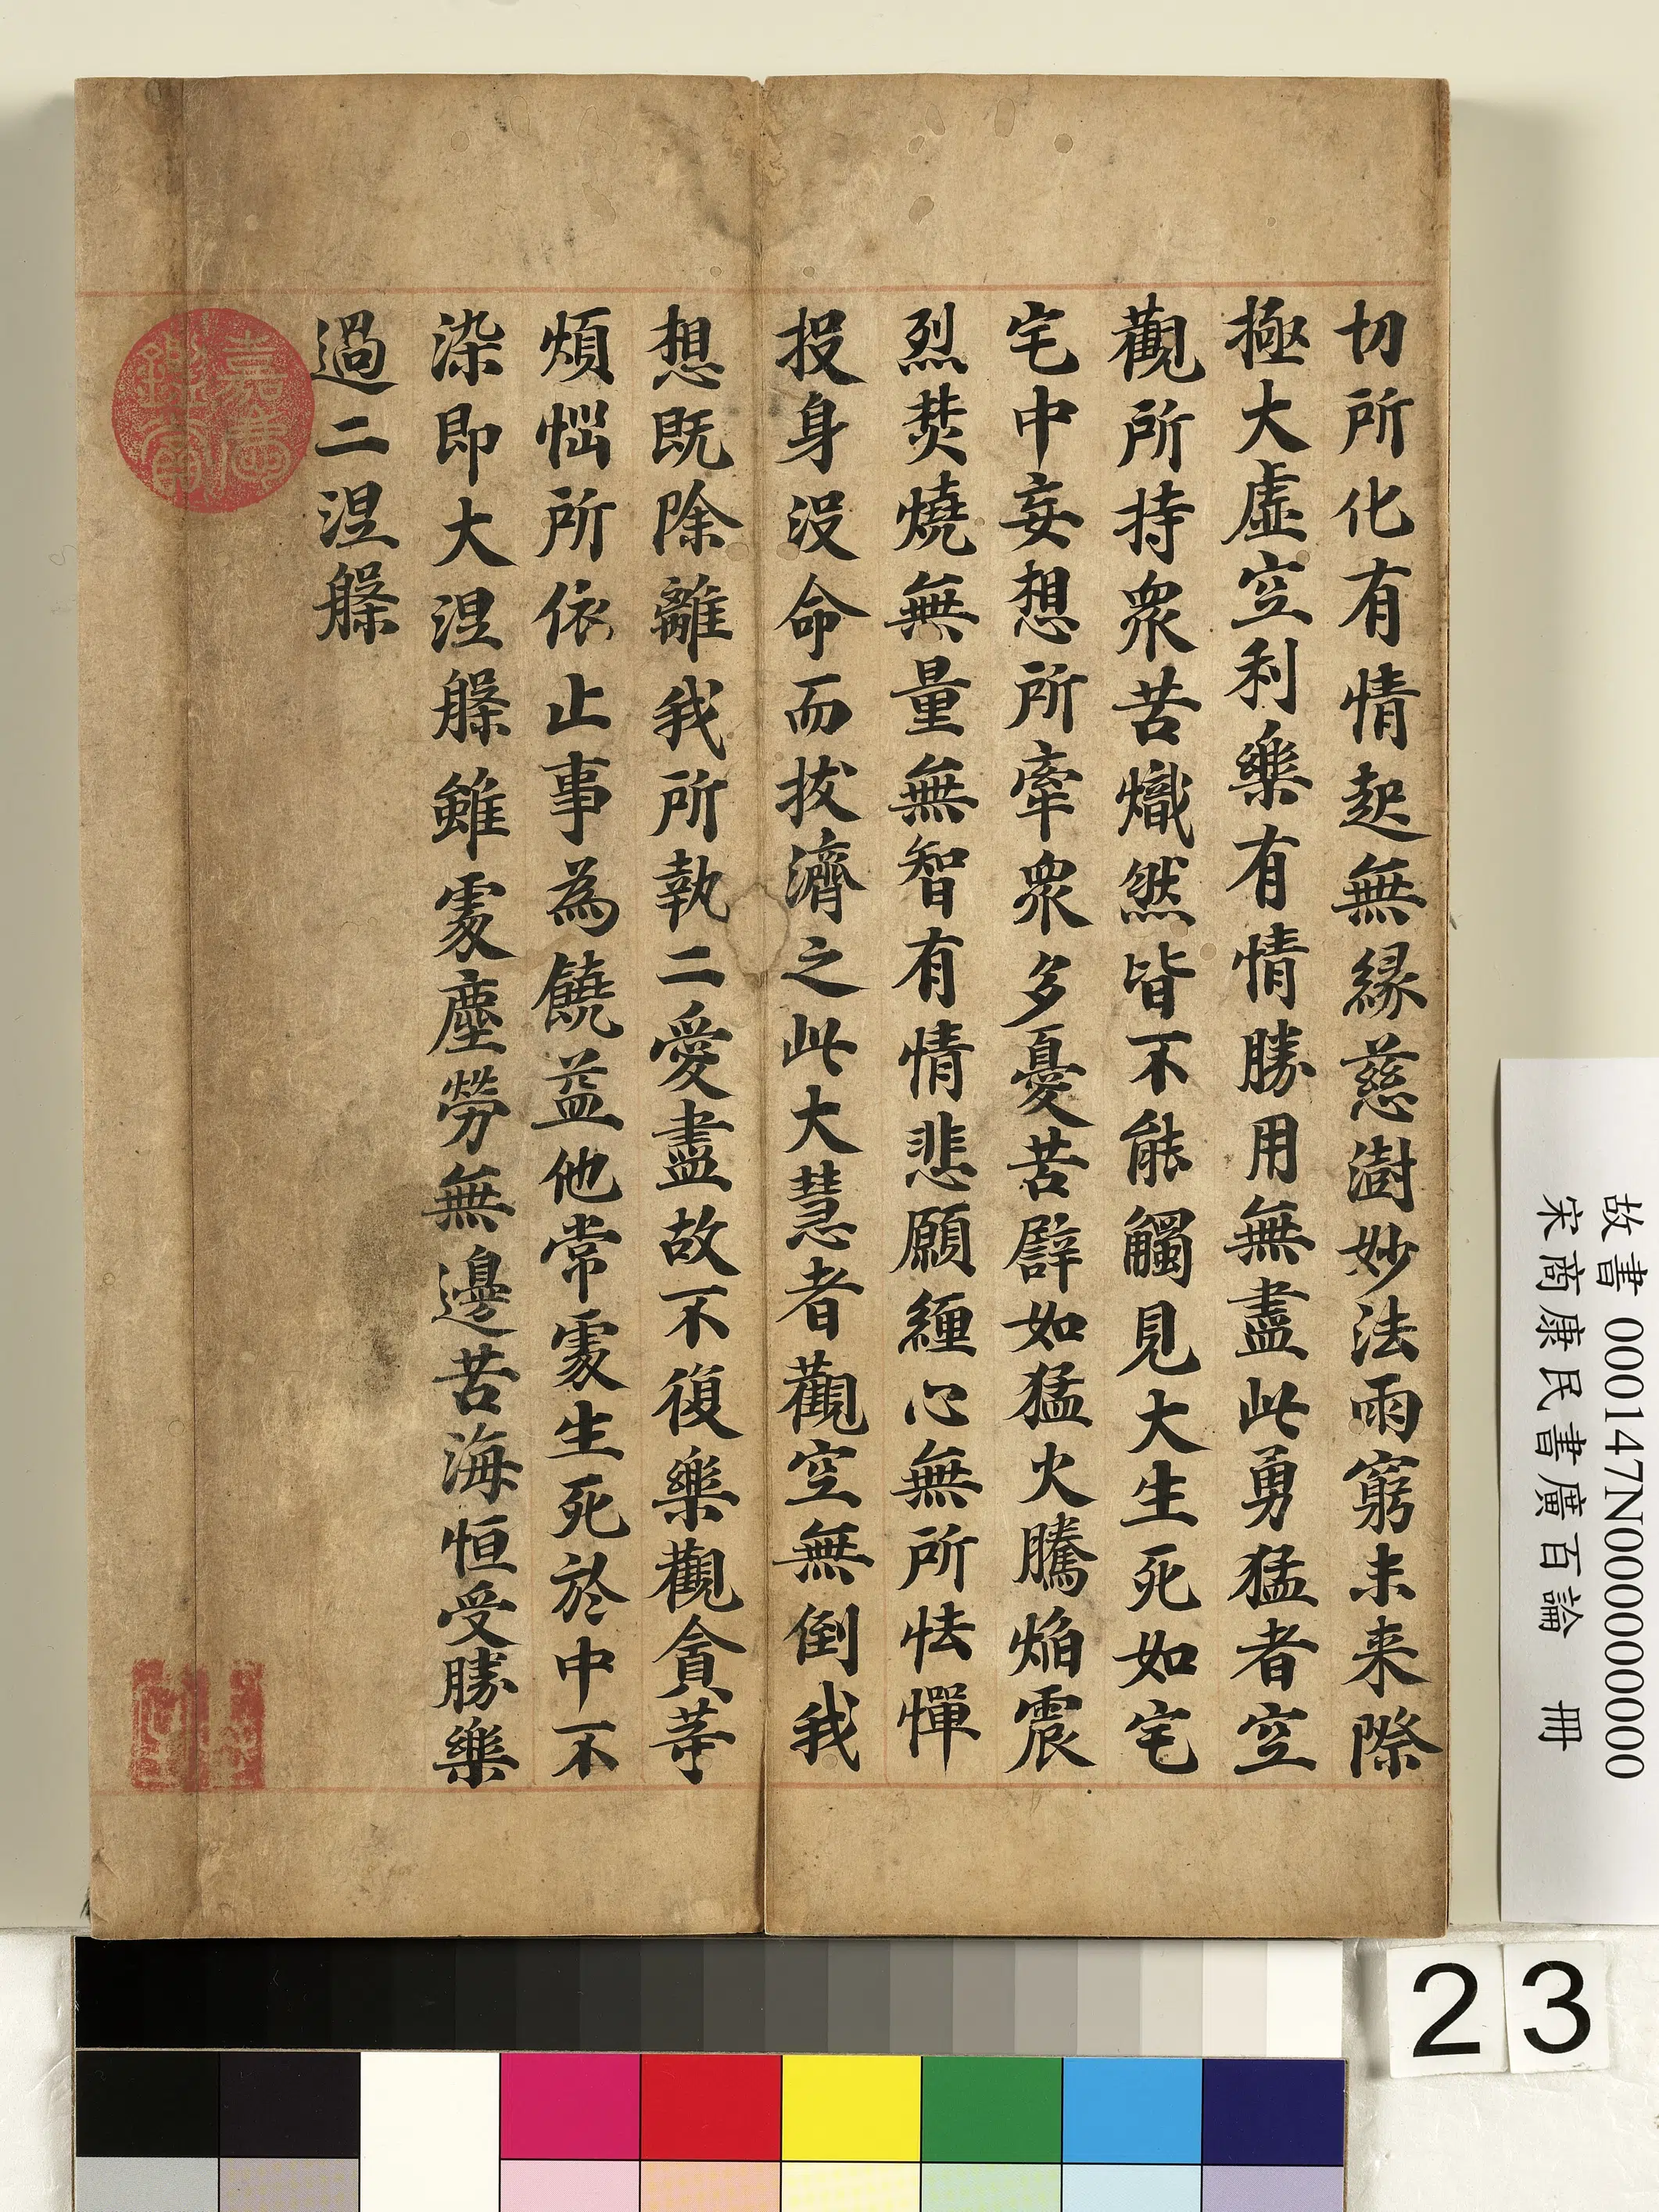 切所化有情起無緣慈澍妙法雨窮未来際
極大虛空利樂有情勝用無盡此勇猛者空
觀所持衆苦熾然皆不能觸見大生死如宅
宅中妄想所牽衆多憂苦譬如猛火騰焰震
烈焚燒無量無智有情悲願纏心無所怯憚
投身沒命而拔濟之此大慧者觀空無倒我
想既除離我所執二愛盡故不復樂觀貪等
煩惱所依止事為饒益他常處生死於中不
染即大涅槃雖處塵勞無邊苦海恒受勝樂
過二涅槃
嘉慶
鑒賞
故書 000147N000000000
宋商康民書廣百論 冊
23